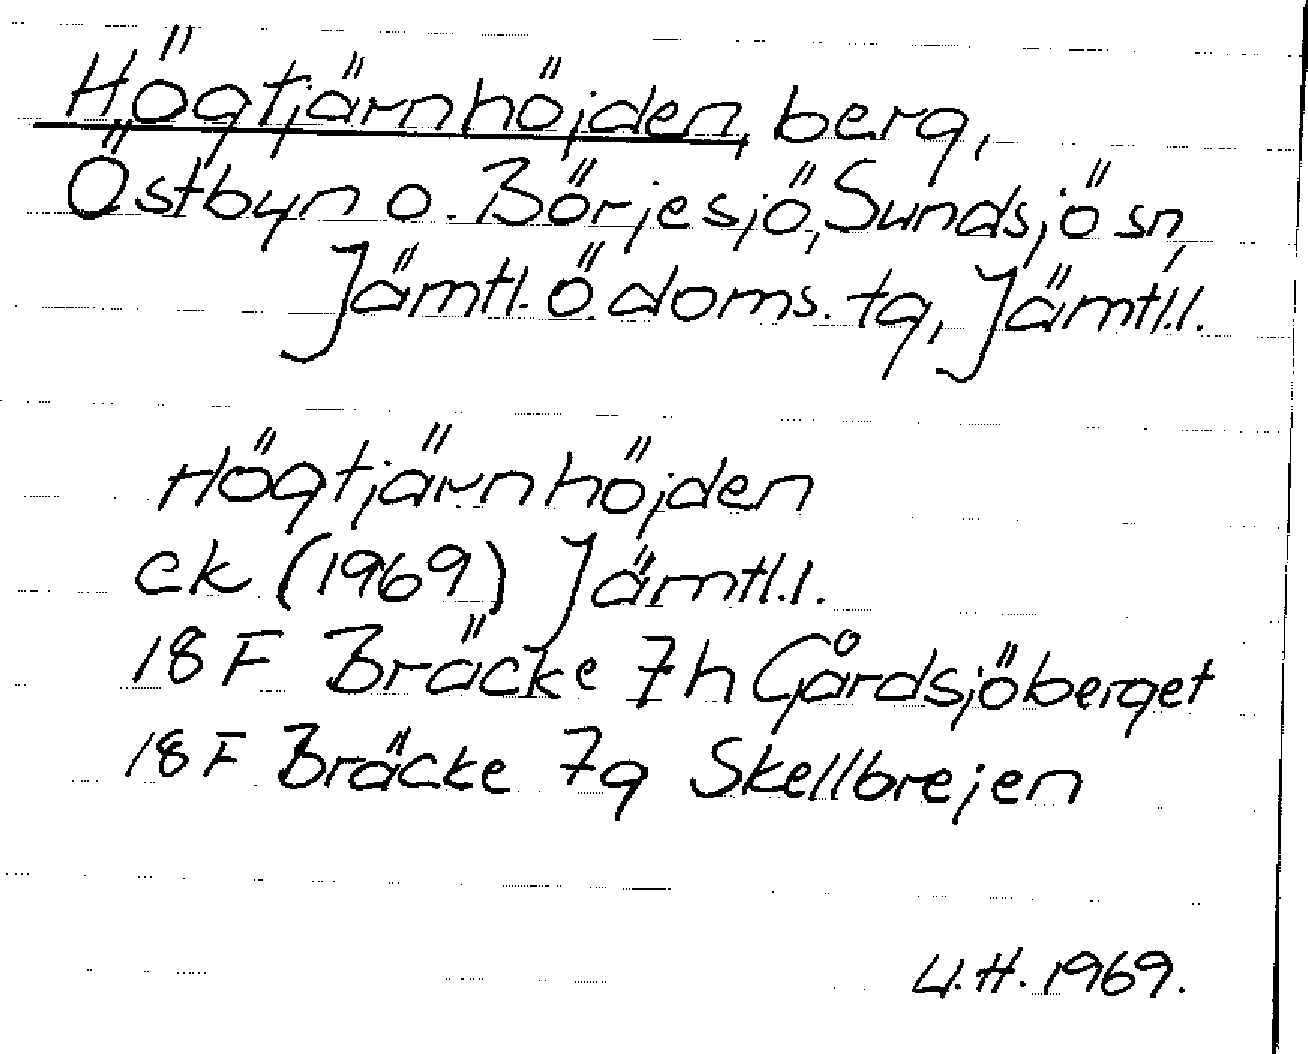 Högtjärnhöjden, berg,
Östbyn o. Börjesjö, Sundsjö sn,
Jämtl. Ö. doms. tg, Jämtl.l.
Högtjärnhöjden
ek (1969) Jämtl.l.
18 F Bräcke 7h Gårdsjöberget
18 F Bräcke 7g Skellbrejen
U.H. 1969.